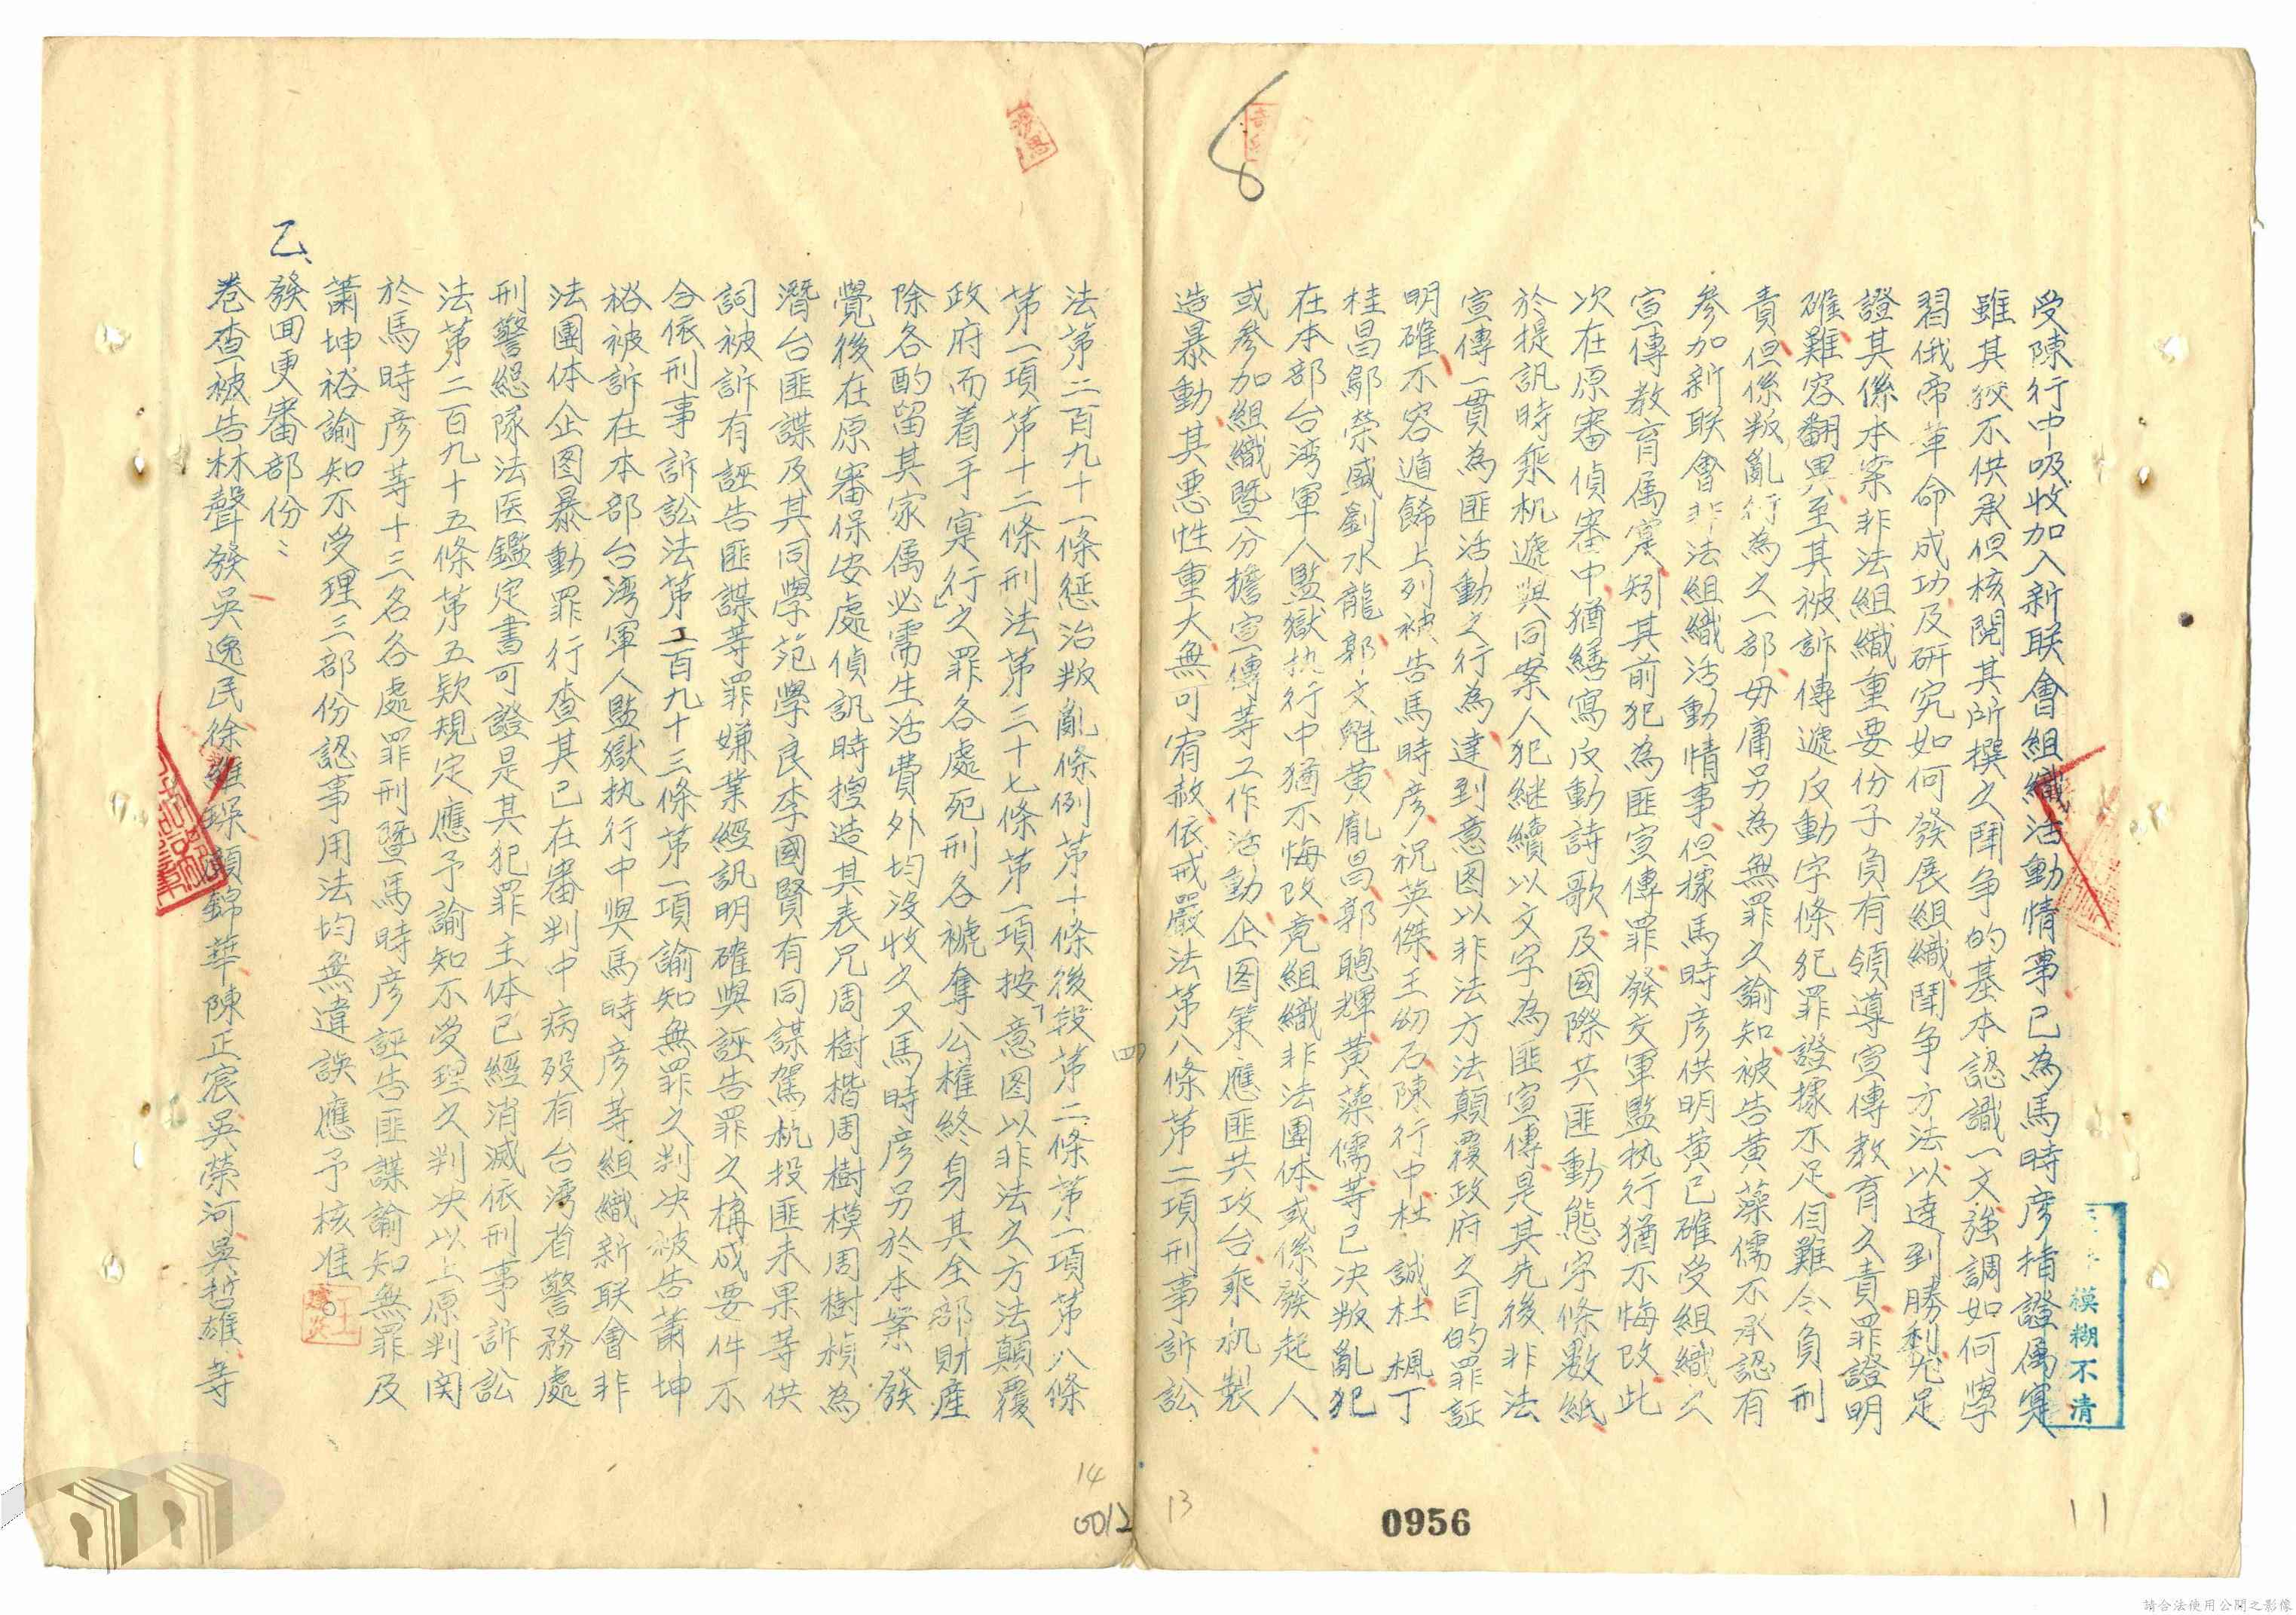 受陳行中吸收加入新联會組織活動情事已為馬時彥指證属寔
雖其狡不供承但核閱其所撰之鬪争的基本認識一文強調如何學
習俄帝革命成功及研究如何發展組織鬪争方法以達到勝利尤足
證其係本案非法組織重要份子負有領導宣傳教育之責罪證明
確難容翻異至其被訴傳遞反動字條犯罪證據不足但難令負刑
責但係叛亂行為之一部毋庸另為無罪之諭知被告黄藻儒不承認有
参加新联會非法組織活動情事但據馬時彥供明黄已確受組織之
宣傳教育属寔矧其前犯為匪宣傳罪發交軍監执行猶不悔改此
次在原審偵審中猶繕寫反動詩歌及國際共匪動態字條數紙
於提訊時乘机遞與同案人犯継續以文字為匪宣傳是其先後非法
宣傳一貫為匪活動之行為達到意图以非法方法顛覆政府之目的罪証
明確不容遁餙上列被告馬時彥祝英傑王幼石陳行中杜誠杜楓丁
桂昌鄔荣盛劉水龍郭文魁黄胤昌郭聰輝黄藻儒等已决叛亂犯
在本部台湾軍人監獄执行中猶不悔改竟組織非法團体或係發起人
或参加組織暨分擔宣傳等工作活動企图策應匪共攻台乘机製
造暴動其悪性重大無可宥赦依戒嚴法第八條第二項刑事訴訟
法第二百九十一條惩治叛亂條例第十條後段第二條第一項第八條
第一項第十二條刑法第三十七條第一項按「意图以非法之方法顛覆
政府而着手寔行」之罪各處死刑各褫奪公權終身其全部財產
除各酌留其家属必需生活費外均沒收之又馬時彥另於本案發
覺後在原審保安處偵訊時揑造其表兄周樹楷周樹模周樹楨為
潛台匪諜及其同學范學良李國賢有同謀駕机投匪未果等供
詞被訴有誣告匪諜等罪嫌業經訊明確與誣告罪之構成要件不
合依刑事訴訟法第二百九十三條第一項諭知無罪之判决被告蕭坤
裕被訴在本部台湾軍人監獄执行中與馬時彥等組織新联會非
法團体企图暴動罪行查其已在審判中病殁有台湾省警務處
刑警總隊法医鑑定書可證是其犯罪主体已經消滅依刑事訴訟
法第二百九十五條第五款規定應予諭知不受理之判决以上原判関
於馬時彥等十三名各處罪刑暨馬時彥誣告匪諜諭知無罪及
蕭坤裕諭知不受理三部份認事用法均無違誤應予核准。
乙、發回更審部份：
卷查被告林聲發吳逸民徐維琛顏錦華陳正宸吳荣河吳哲雄等
四
模糊不清
8
11
13
14
0012
0956
請合法使用公開之影像